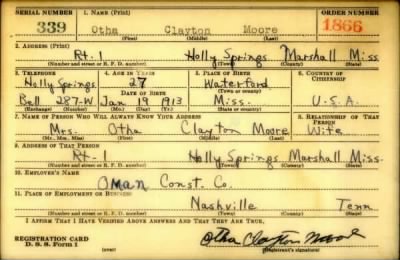 SERIAL NUMBER 1. NAME (Print) ORDER NUMBER
339 Otha Clayton Moore 1866
(First) (Middle) (Last)
2. ADDRESS (Print)
Rt. 1 Holly Springs Marshall Miss.
(Number and street or R. F. D. number) (Town) (County) (State)
3. TELEPHONE 4. AGE IN YEARS 5. PLACE OF BIRTH 6. COUNTRY OF CITIZENSHIP
Holly Springs 27 Waterford
DATE OF BIRTH (Town or county)
Bell 287-W Jan 19 1913 Miss. U.S.A.
(Exchange) (Number) (Mo.) (Day) (Yr.) (State or country)
7. NAME OF PERSON WHO WILL ALWAYS KNOW YOUR ADDRESS 8. RELATIONSHIP OF THAT PERSON
Mrs. Otha Clayton Moore Wife
(Mr., Mrs., Miss) (First) (Middle) (Last)
9. ADDRESS OF THAT PERSON
Rt-1 Holly Springs Marshall Miss.
(Number and street or R. F. D. number) (Town) (County) (State)
10. EMPLOYER'S NAME
Oman Const. Co.
11. PLACE OF EMPLOYMENT OR BUSINESS
Nashville Tenn
(Number and street or R. F. D. number) (Town) (County) (State)
I AFFIRM THAT I HAVE VERIFIED ABOVE ANSWERS AND THAT THEY ARE TRUE.
REGISTRATION CARD Otha Clayton Moore
D. S. S. Form 1 (over) (Registrant's signature)